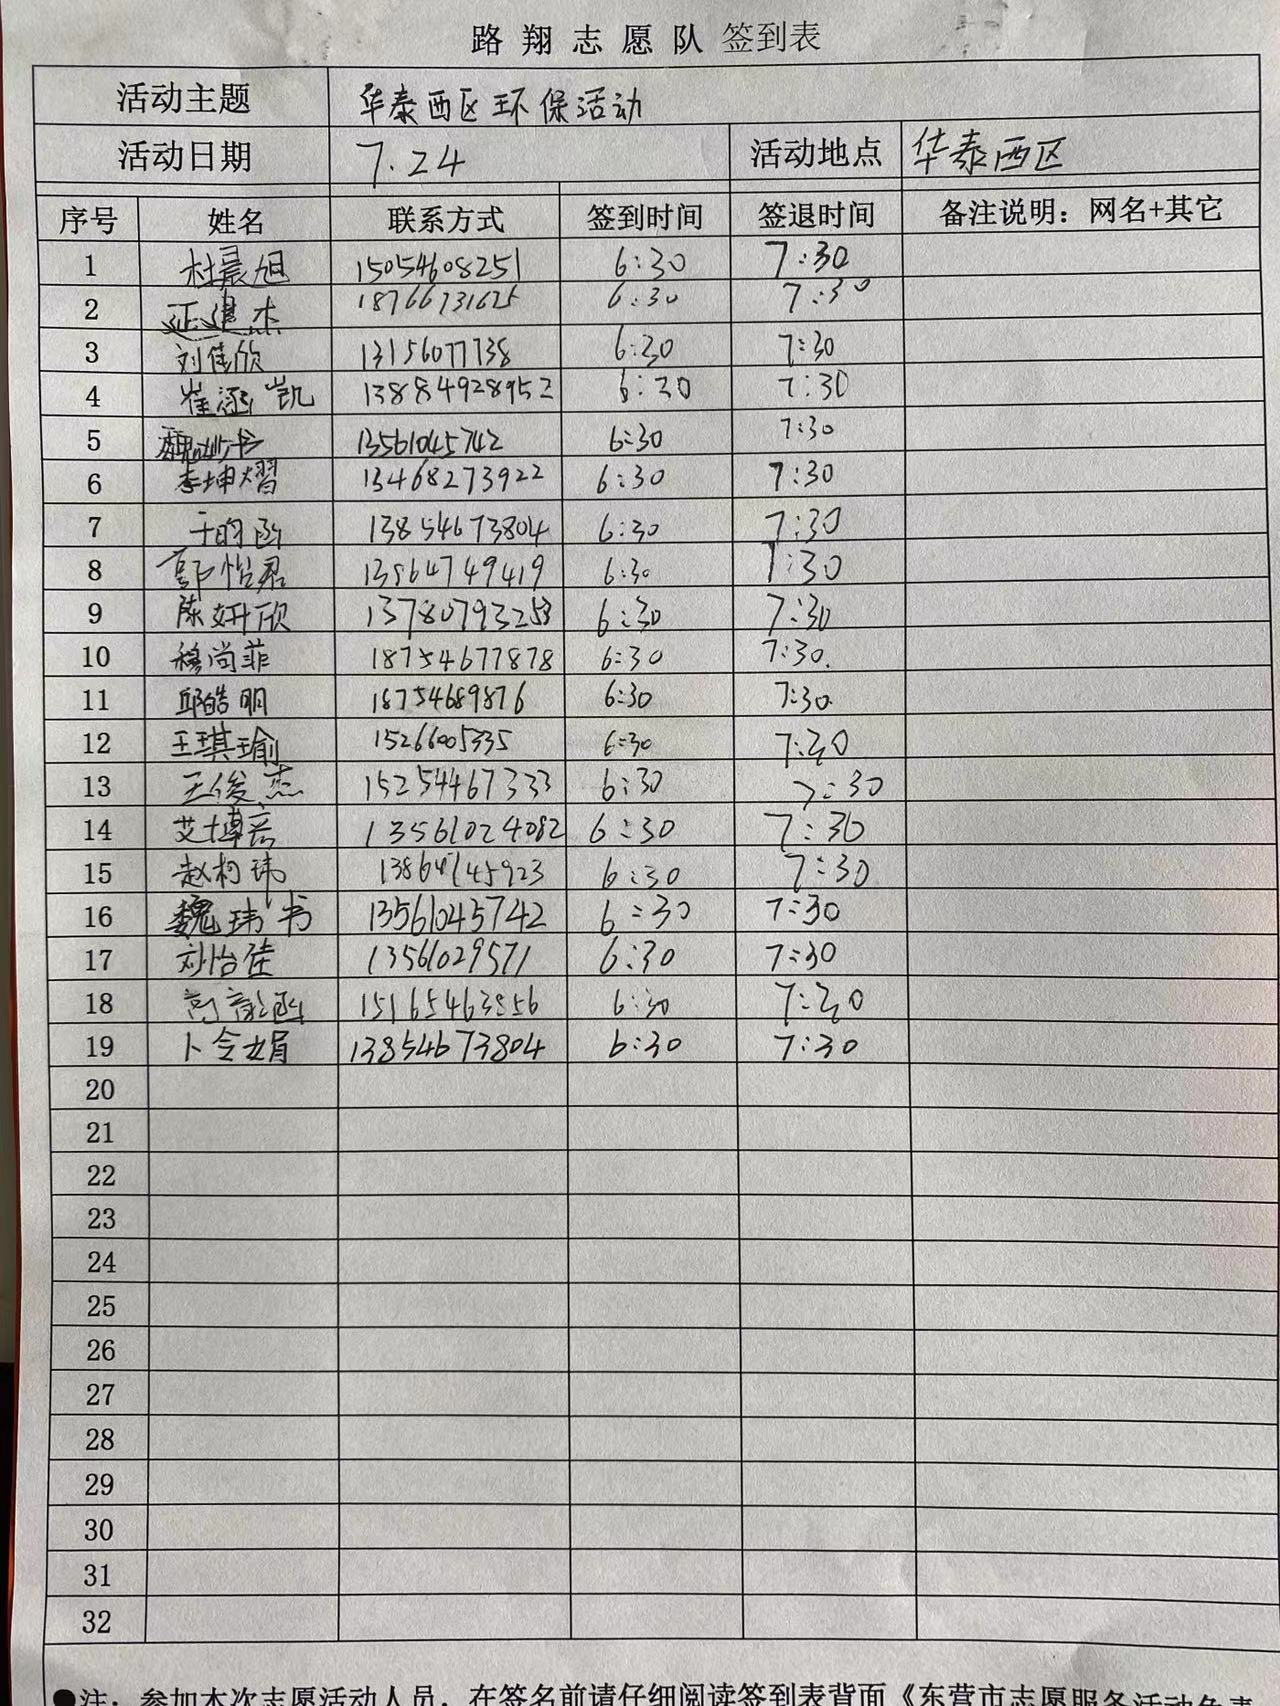 路翔志愿队 签到表
活动主题 华泰西区环保活动
活动日期 7.24 活动地点 华泰西区
序号 姓名 联系方式 签到时间 签退时间 备注说明：网名+其它
1 杜晨旭 15054608251 6:30 7:30
2 延建杰 18766731625 6:30 7:30
3 刘佳欣 13156077738 6:30 7:30
4 崔涵凯 13884928952 6:30 7:30
5 魏妙书 13561045742 6:30 7:30
6 李坤熠 13468273922 6:30 7:30
7 于昀函 13854673804 6:30 7:30
8 郭怡君 13964749419 6:30 7:30
9 陈妍欣 13780793253 6:30 7:30
10 穆尚菲 18754677878 6:30 7:30.
11 邱皓明 18754689876 6:30 7:30.
12 王琪瑜 15266005335 6:30 7:30
13 王俊杰 15254467333 6:30 7:30
14 艾博 13561024082 6:30 7:30
15 赵柯玮 13864745923 6:30 7:30
16 魏玮书 13561045742 6:30 7:30
17 刘怡佳 13561029571 6:30 7:30
18 高 函 15165463856 6:30 7:30
19 卜令娟 13854673804 6:30 7:30
20
21
22
23
24
25
26
27
28
29
30
31
32
●注：参加本次志愿活动人员，在签名前请仔细阅读签到表背面《东营市志愿服务活动免责